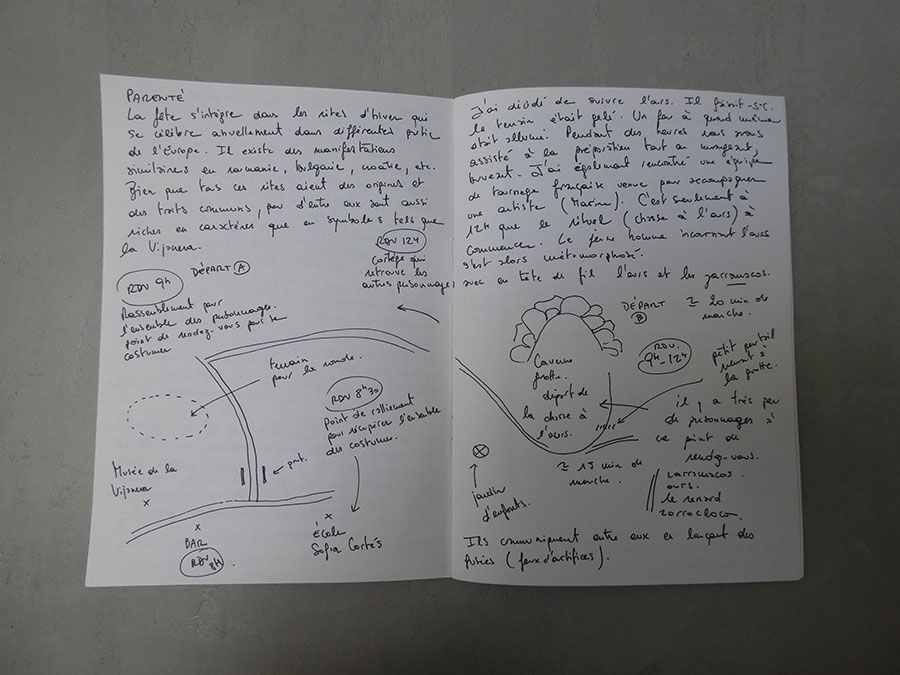 PARENTÉ
La fête s'intègre dans les rites d'hiver qui
se célèbre annuellement dans différentes partie
de l'Europe. Il existe des manifestations
similaires en roumanie, bulgarie, croatie, etc.
Bien que tous ces rites aient des origines et
des traits communs, peu d'entre eux sont aussi
riches en caractères que en symboles tels que
la Vijanera.
RDV 12H
Cortège qui
retrouve les
autres personnages
RDV 9h
DÉPART A
Rassemblement pour
l'ensemble des personnages.
point de rendez-vous pour se
costumer
terrain
pour la ronde.
RDV 8h30
Point de ralliement
pour récupérer l'ensemble
des costumes.
pont.
Musée de la
Vijanera
BAR
RDV 8H
École
Sofia Cortés
J'ai décidé de suivre l'ours. Il faisait -5°C.
le terrain était gelé. Un feu à quand même
était allumé. Pendant des heures nous avons
assisté à la préparation tout en mangeant,
buvant. J'ai également rencontré une équipe
de tournage française venue pour accompagner
une artiste (Marine). C'est seulement à
12h que le rituel (chasse à l'ours) à
commencer. Le jeune homme incarnant l'ours
s'est alors métamorphosé.
avec en tête de fil l'ours et les zarramacos.
DÉPART
B
≃ 20 min de
marche.
Caverne
grotte.
départ de
la chasse à
l'ours.
RDV.
9h-12h
petit portail
menant à
la grotte.
il y a très peu
de personnages à
ce point de
rendez-vous.
zarramacos.
ours.
le renard
zorrocloco.
≃ 15 min de
marche.
jardin
d'enfants.
Ils communiquent entre eux en lançant des
fusées (feux d'artifices).